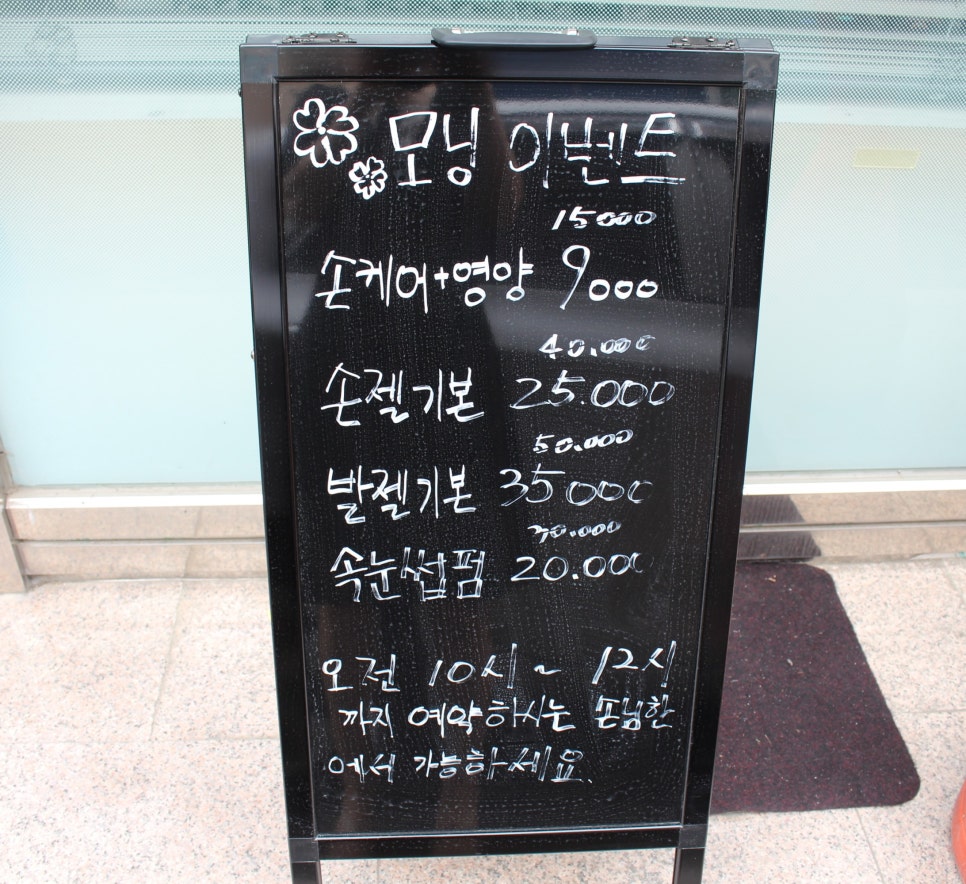 모닝 이벤트
15000
손케어+영양 9000
40.000
손젤기본 25.000
50.000
발젤기본 35000
30.000
속눈썹펌 20.000
오전 10시 ~ 12시
까지 예약하시는 손님한
에서 가능하세요.